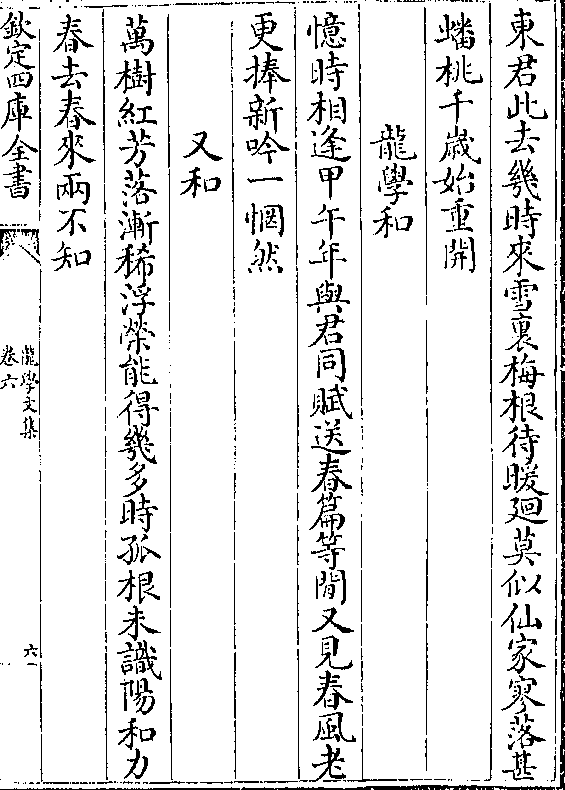 東君此去幾時來雪裏梅根待暖廻莫似仙家寥落甚
蟠桃千歲始重開
龍學和
憶時相逢甲午年與君同賦送春篇等閒又見春風老
更捧新吟一惘然
又和
萬樹紅芳落漸稀浮榮能得幾多時孤根未識陽和力
春去春來兩不知
欽定四庫全書
龍學文集
卷六
六